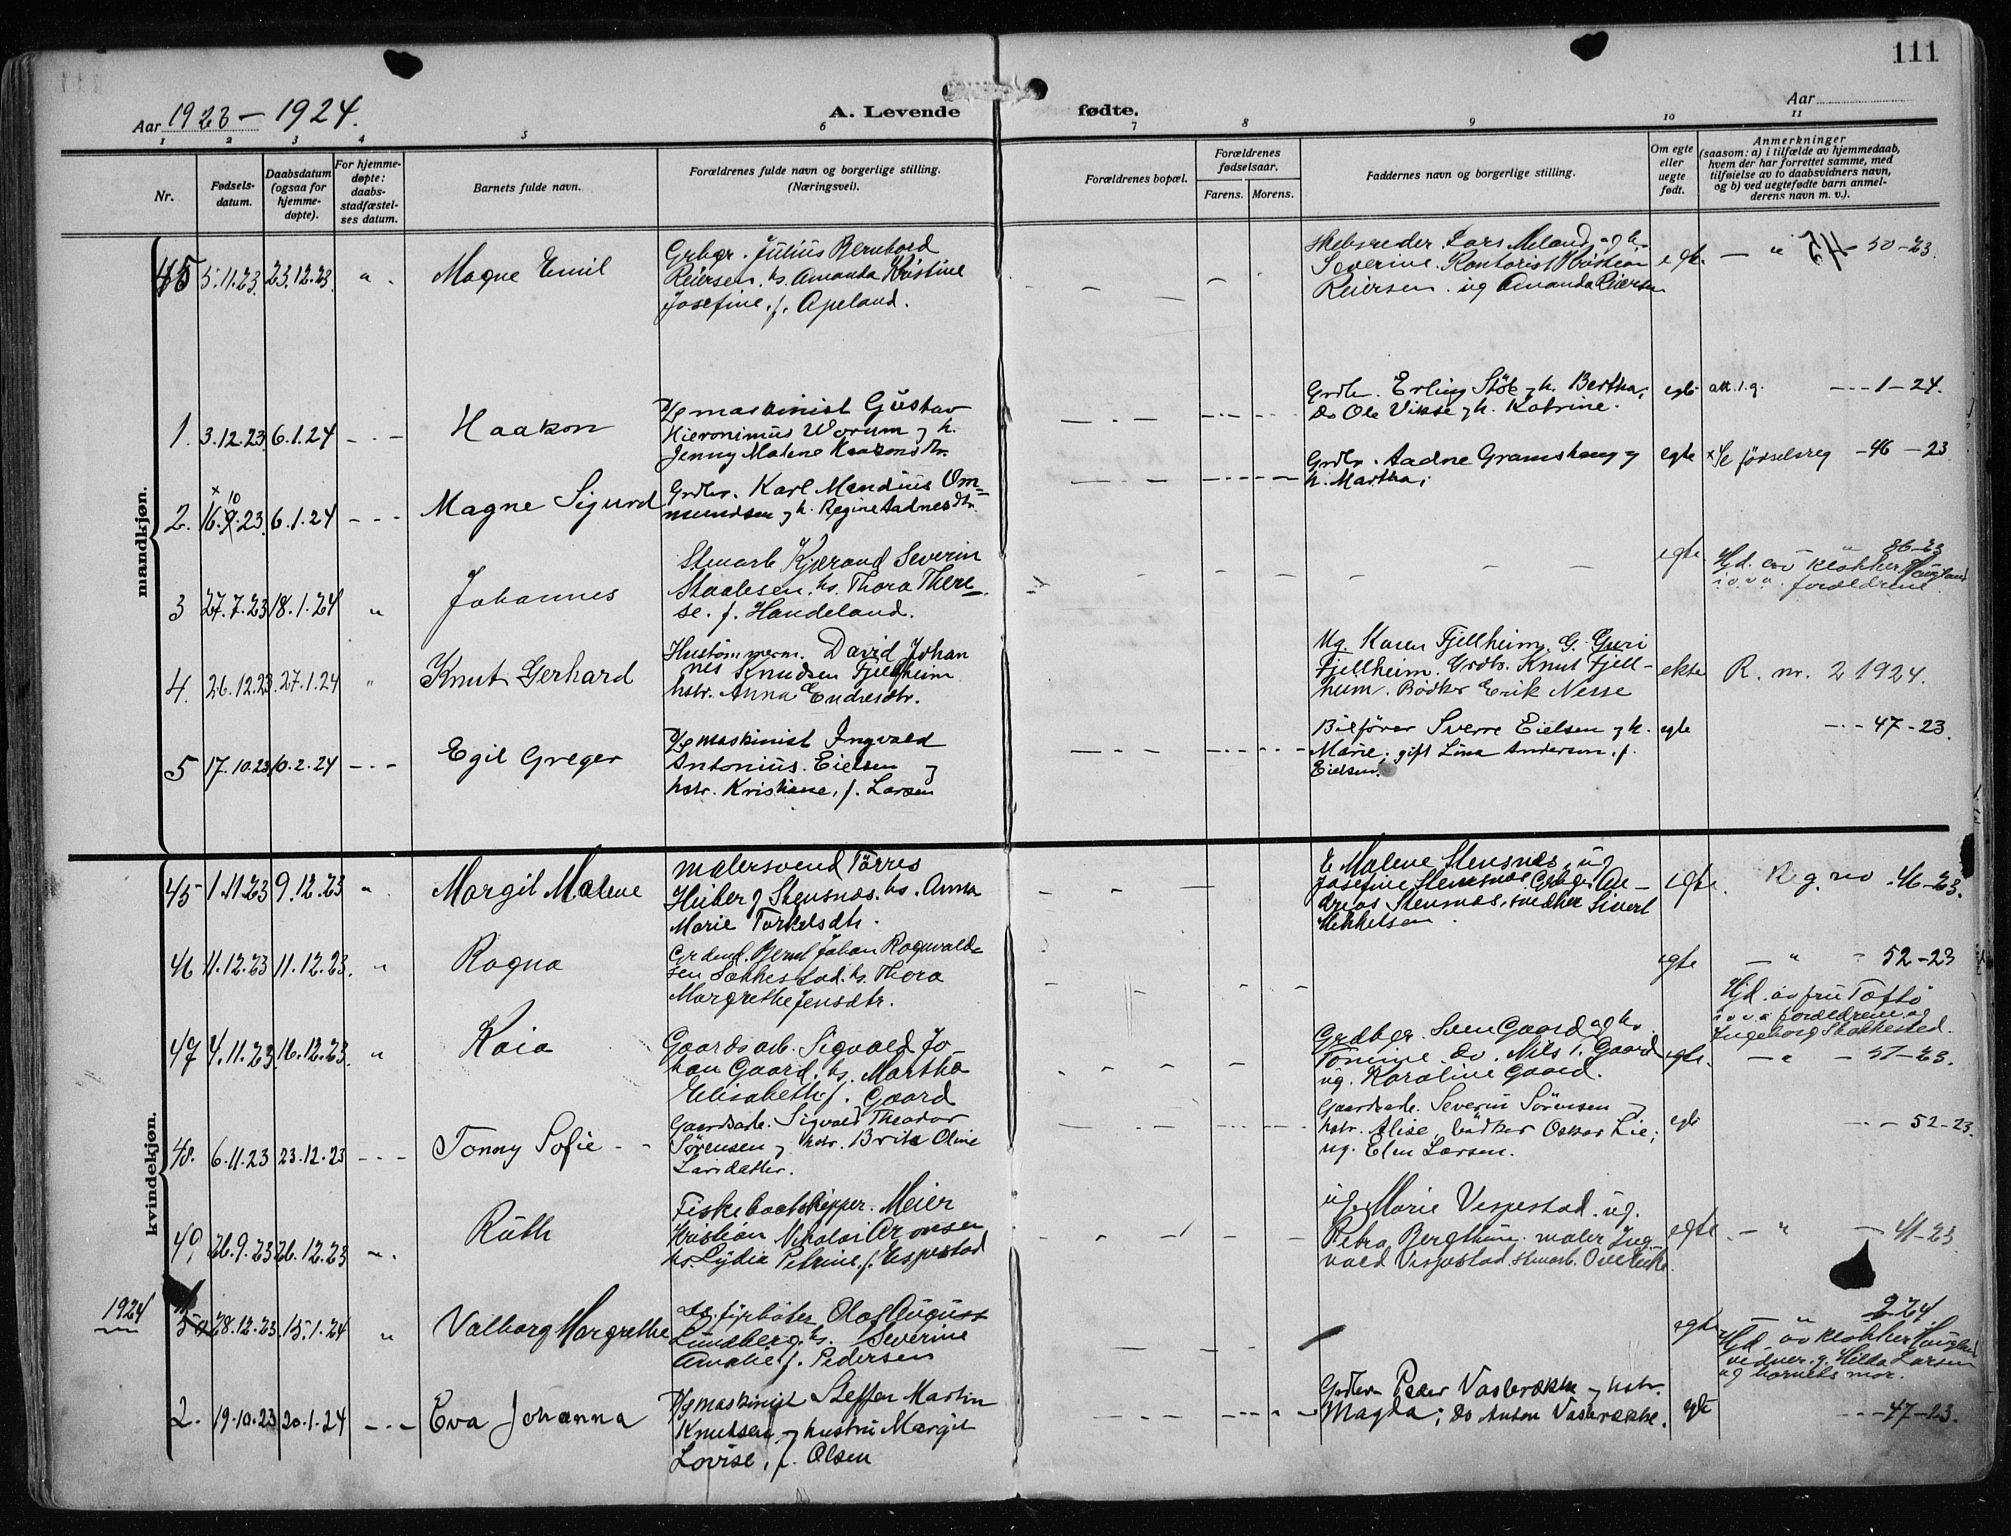 111
Aar 1923 – 1924.
A. Levende fødte.
Aar
1 2 3 4 5 6 7 8 9 10 11
Nr.
Fødsels-
datum.
Daabsdatum
(ogsaa for
hjemme-
døpte).
For hjemme-
døpte:
daabs-
stadfæstel-
ses datum.
Barnets fulde navn.
Forældrenes fulde navn og borgerlige stilling.
(Næringsvei).
Forældrenes bopæl.
Forældrenes
fødselsaar.
Farens. Morens.
Faddernes navn og borgerlige stilling.
Om egte
eller
uegte
født.
Anmerkninger
(saasom: a) i tilfælde av hjemmedaab,
hvem der har forrettet samme, med
tilføielse av to daabsvidners navn,
og b) ved uegtefødte barn anmel-
derens navn m. v.).
mandkjøn.
45 5.11.23 23.12.23 " Magne Emil
Grbgr. Julius Bernhard
Reiersen. hs. Amanda Kristine
Josefine. f. Apeland.
Skibsreder Lars Meland og h.
Severine. Kontorist Kristian
Reiersen. ug Amanda Reiersen
egte. — " 45 — 50-23.
1. 3.12.23 6.1.24 – . – Haakon
maskinist Gustav
Hieronimus Worum og h.
Jenny Malene
Grdbr. Erling Stöle og h. Bertha;
Do Ole Vikse og h. Katrine.
egte att. l.g. – . – 1 – 24.
2. 16.9.23 6.1.24 – . – Magne Sigurd
x 10
Grdbr. Karl Mandius Om=
mundsen og h. Regine Aadnesdtr.
Grdbr. Aadne Gramshaug og
h. Martha;
egte x Se fødselsreg – 46 – 23
3 27.7.23 18.1.24 " Johannes
Stenarb Kjærand Severin
Staalesen. hs. Thora There=
se. f. Handeland.
egte " 86-23
Hjd. av klokker Haugland
i o v a. forældrene.
4. 26.12.23 27.1.24 " Knut Gerhard
Hustømmerm. David Johan
nes Knudsen Fjellheim
hstr. Anna Endresdtr.
Ug. Karen Fjellheim. G. Guri
Fjellheim. Grdbr. Knut Fjell-
heim. Bødker Erik Nesse
ekte R. nr. 2 1924.
5 17.10.23 10.2.24 – . – Egil Greger
maskinist Ingvald
Antonius Eielsen og
hstr. Kristiane, f. Larsen
Bilfører Sverre Eielsen og h.
Marie; gift Lina Andersen, f.
Eielsen.
egte – . – 47 – 23.
kvindekjøn.
45 1.11.23 9.12.23 " Margit Malene
Malersvend Törres
Hüberg Stensnæs. hs. Anna
Marie Torkelsdtr.
E Malene Stensnæs, ug
Josefine Stensnæs. Grbgr. An-
dreas Stensnæs, snedker Sivert
Mikkelsen.
egte. Reg. no 46-23.
46 4.12.23 11.12.23. " Ragna
Bernt Johan Rognvald=
sen Sakkestad. hs. Thora
Margrethe Jensdtr.
egte — " – 52 – 23
Hjd. av fru Toftö
i o v a forældrene og
Ingeborg Stakkestad.
47 4.11.23 16.12.23 " Kaia
Gaardsarb. Sigvald Jo-
han Gaard. hs. Martha
Elisabeth f. Gaard
Grdbgr. Sven Gaard og h.
Tomine Do. Nils I. Gaard
ug. Karoline Gaard.
egte. — " – 51 – 23.
48. 6.11.23 23.12.23 – – – Tonny Sofie –
Gaardsarb. Sigvald Theodor
Sørensen og hstr. Brita Oline
Larsdatter.
Gaardsarb. Severin Sörensen og
hstr. Alise, bødker Oskar Lie;
ug. Elen Larsen.
egte – . – 52 – 23.
49 26.9.23 26.12.23 " Ruth
Fiskebaatskipper. Meier
Kristian Nikolai Aronsen
hs. Lydia Petrine, f. Vespestad
ug. Marie Vespestad. ug.
Petra Bergthun. maler Ing-
vald Vespestad. stenarb.
egte. – " – 41-23
1924
1 28.12.23 15.1.24 " Valborg Margrethe
fyrbøter Olaf August
Lundberg. hs. Severine
Amalie f. Pedersen
egte — " 2 24
Hjd. av klokker Haugland
vidner. g. Hilda Larsen
og barnets mor.
2. 19.10.23 20.1.24 – . – Eva Johanna
maskinist Steffen Martin
Knutsen og hustru Margit
Lovise, f. Olsen
Grdbr. Peder Vasbrække og hstr.
Magda; Do Anton Vasbrække.
egte – . – 47 – 23.